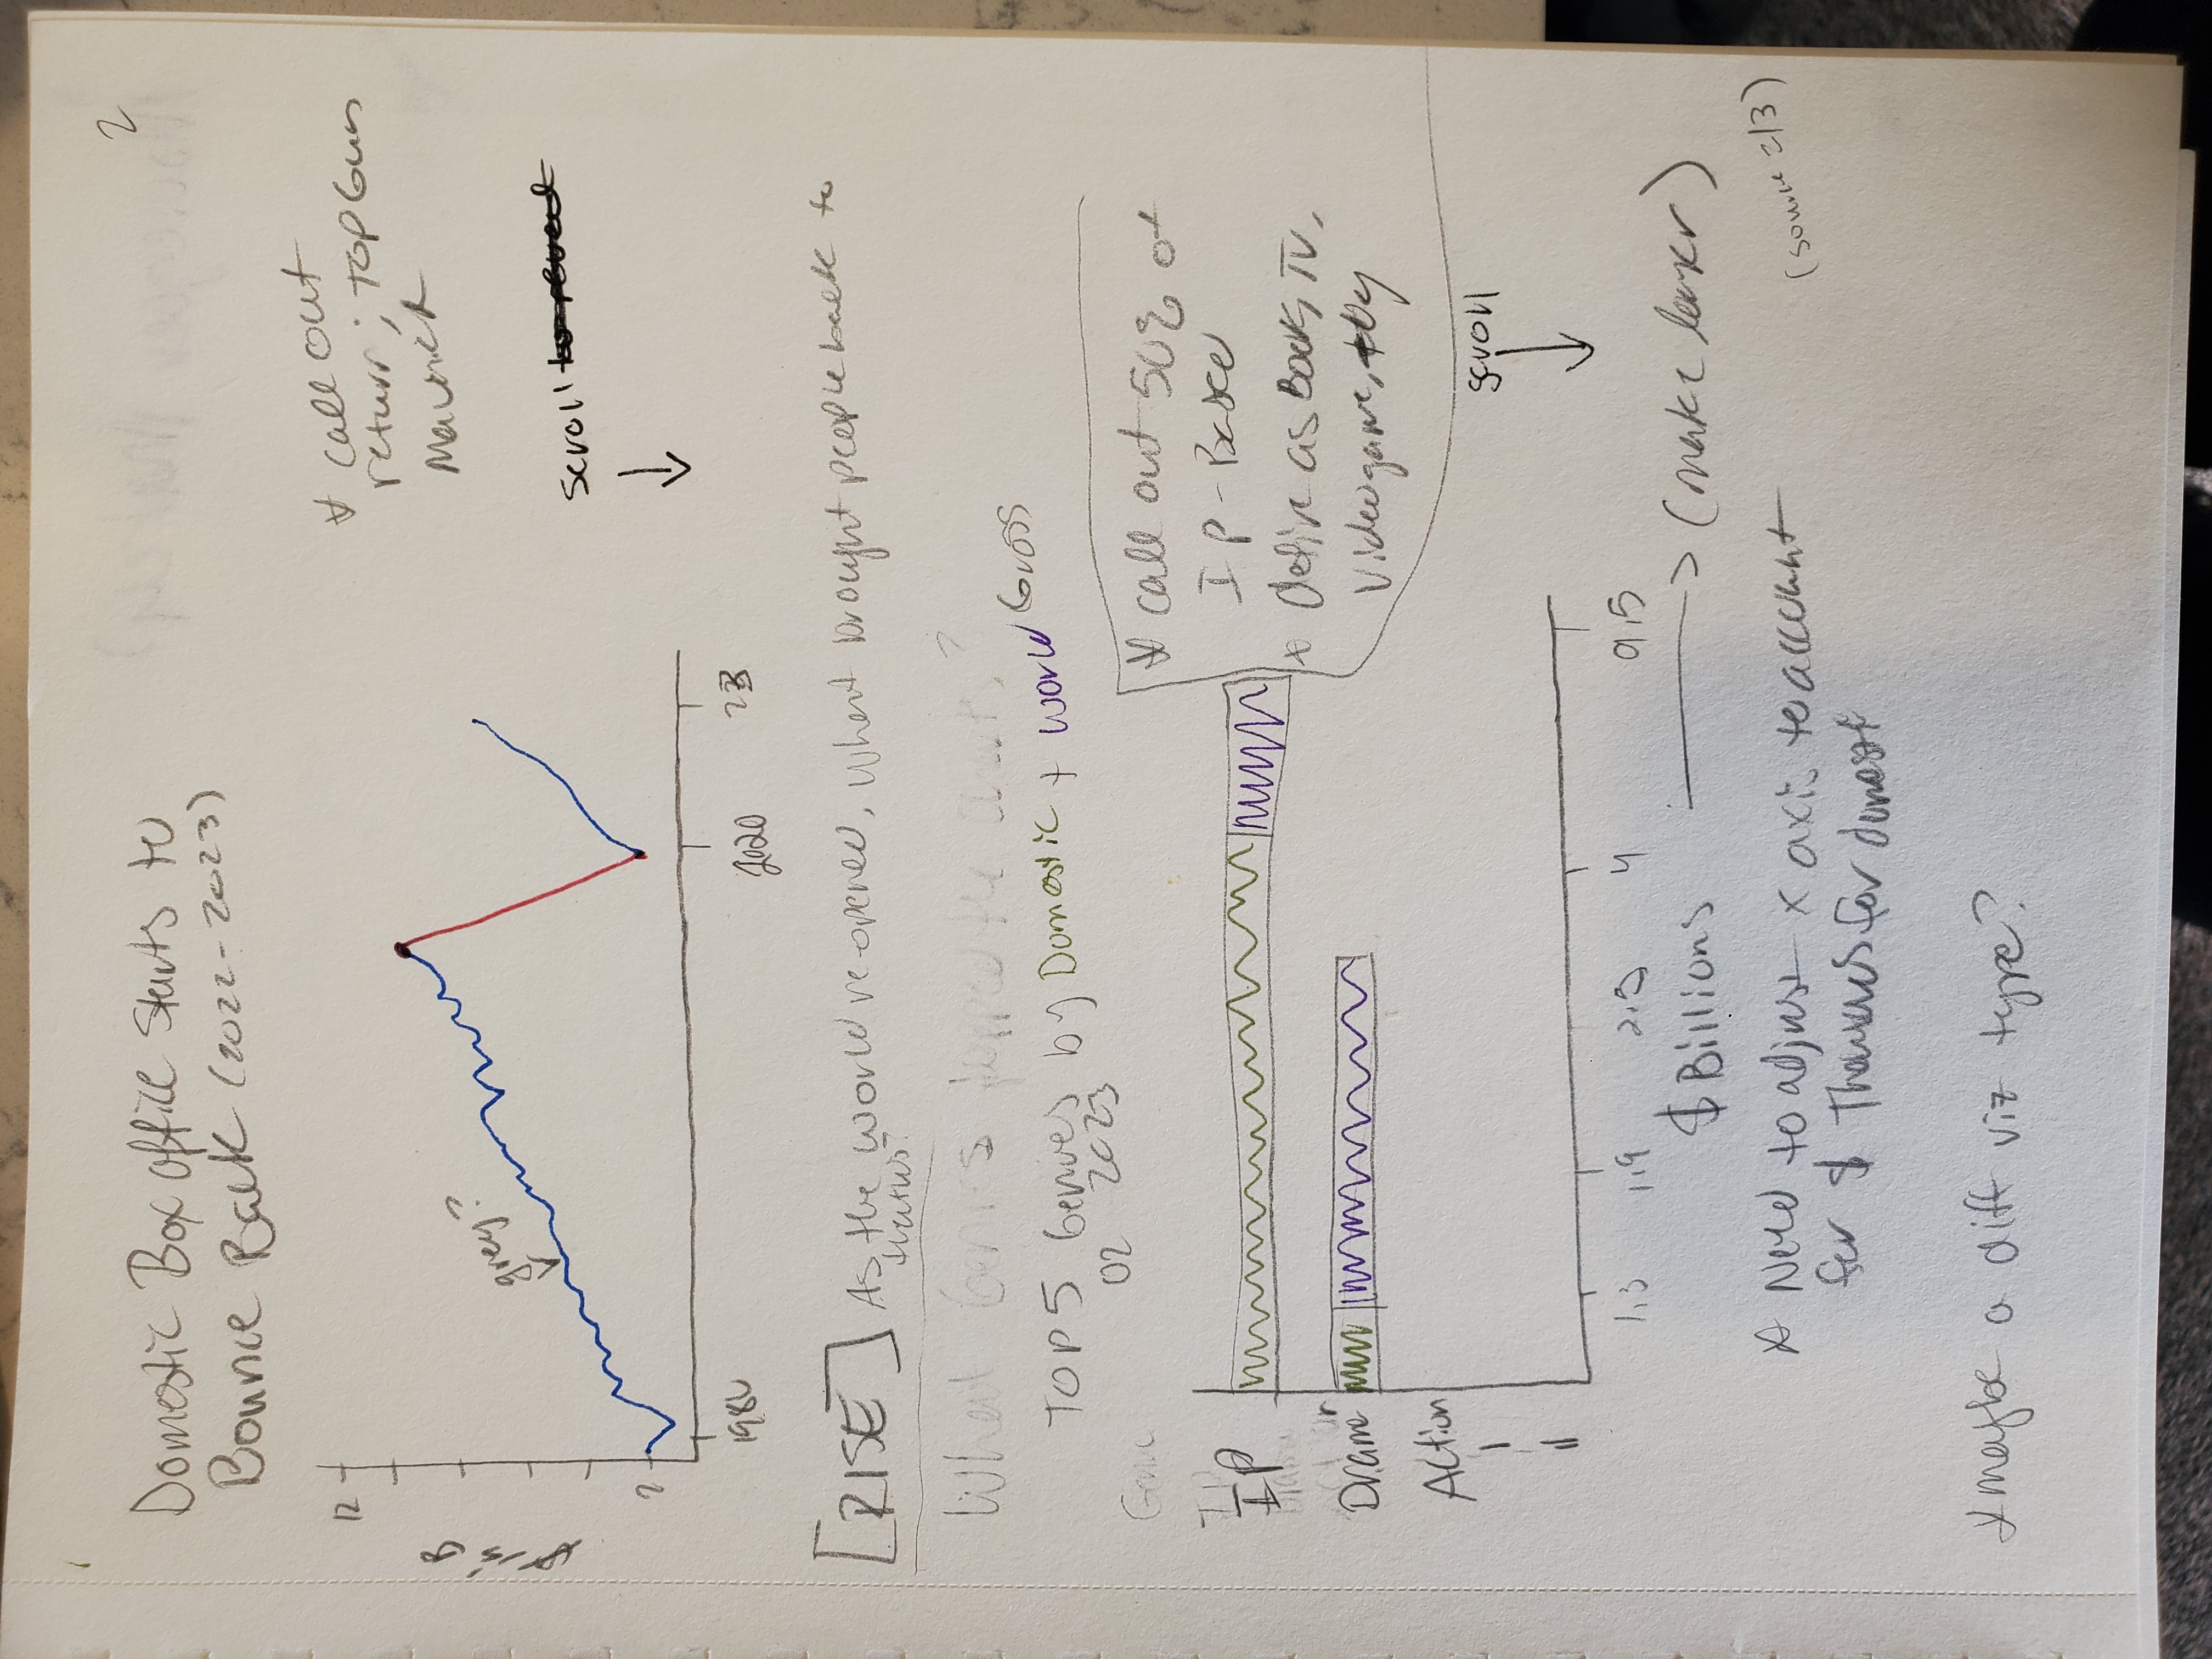 2
Domestic Box office Starts to
Bounce Back (2022-2023)
12
$ in B
2
grey?
1980
2020
23
* Call out
return; TOP Gun
Maverick
scroll
[RISE] As the world reopened, what brought people back to
theaters?
What Genres topped the charts?
TOP 5 Genres by Domestic + World Gross
02 2023
Genre
IP
IP
Drama
Action
I
II
* Call out 50% of
IP-Based
* Define as Books, TV,
Videogame, toy
scroll
1.3 1.9 2.5 4 9.5
$ Billions → (make longer)
* Need to adjust x axis to account
for $ Thousands for domest
(source 2/3)
* maybe a diff viz type?